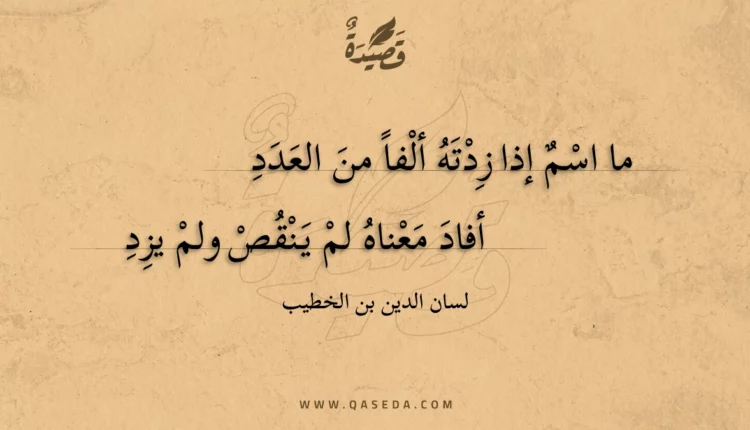 قَصِيْدَةٌ
ما اسْمٌ إذا زِدْتَهُ ألْفاً منَ العَدَدِ
أفادَ مَعْناهُ لمْ يَنْقُصْ ولمْ يزِدِ
لسان الدين بن الخطيب
WWW.QASEDA.COM